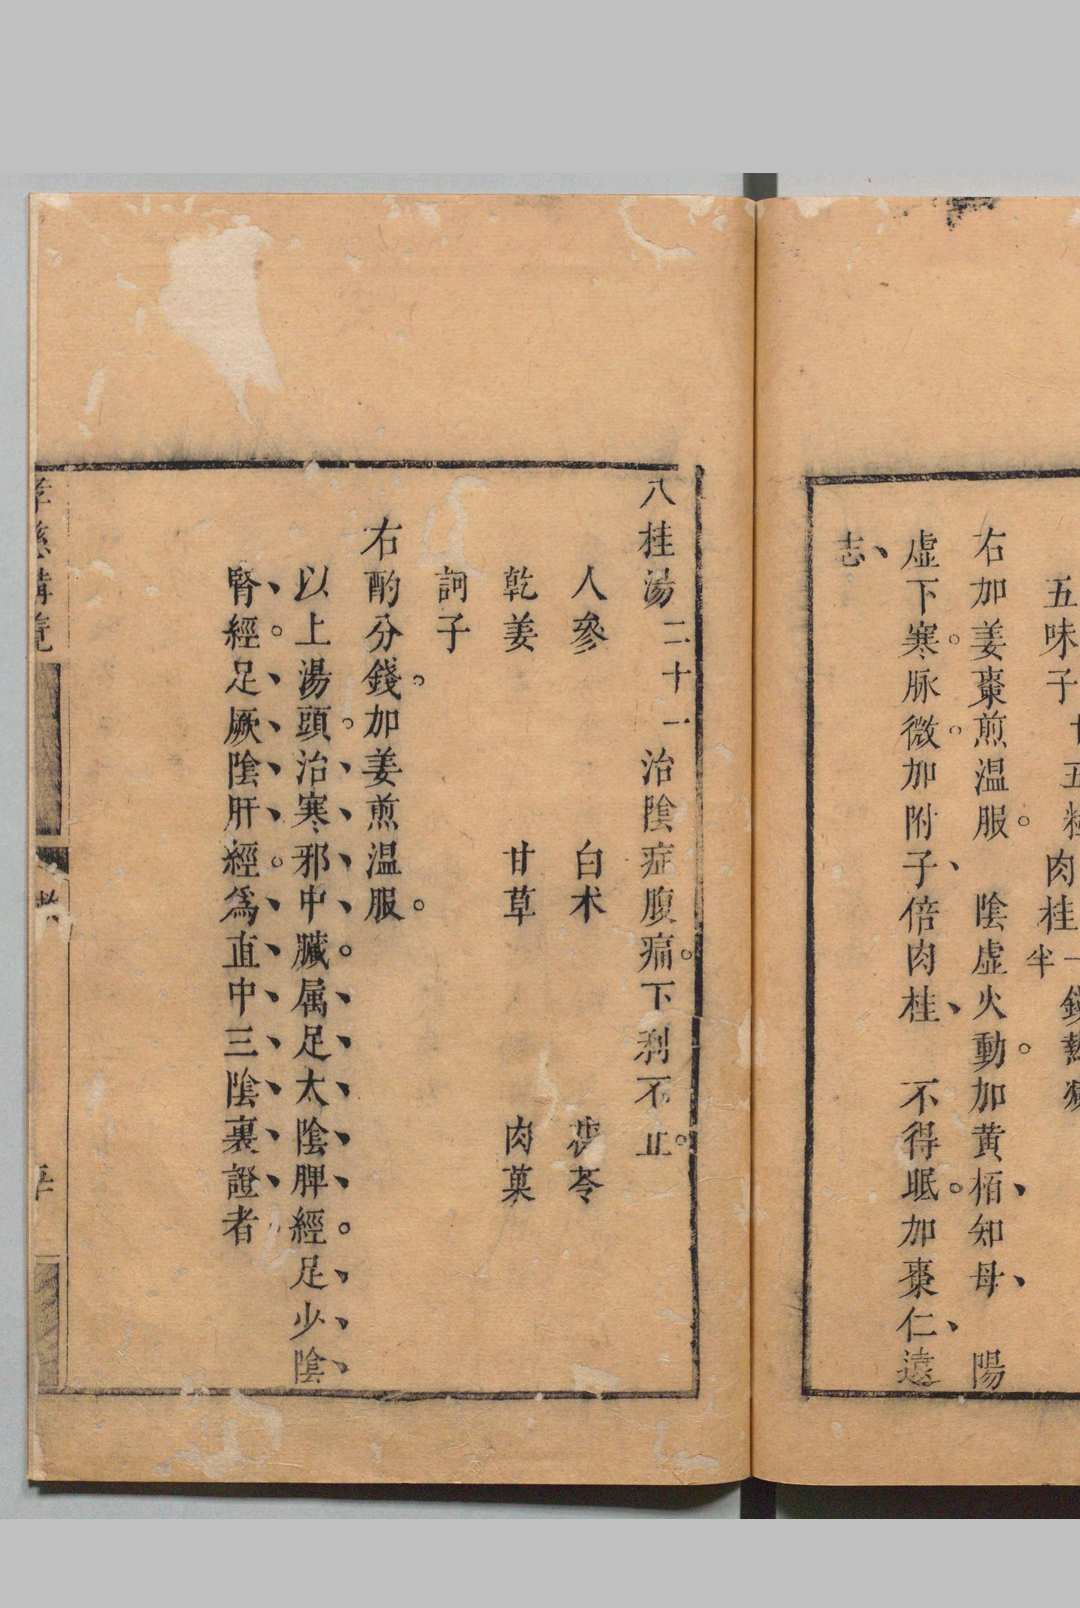 五味子十五粒肉桂一錢熱
半
右加姜棗煎温服。陰虛火動。加黄栢、知母、陽
虛下寒。脉微。加附子、倍肉桂、不得眠。加棗仁、遠
志、
八桂湯二十一治陰症腹痛。下利不止。
人參 白术 茯苓
乾姜 甘草 肉菓
訶子
右酌分錢。加姜煎温服。
以上湯頭。治寒邪中臟。属足太陰脾經。足少陰
腎經。足厥陰肝經。爲直中三陰裏證者